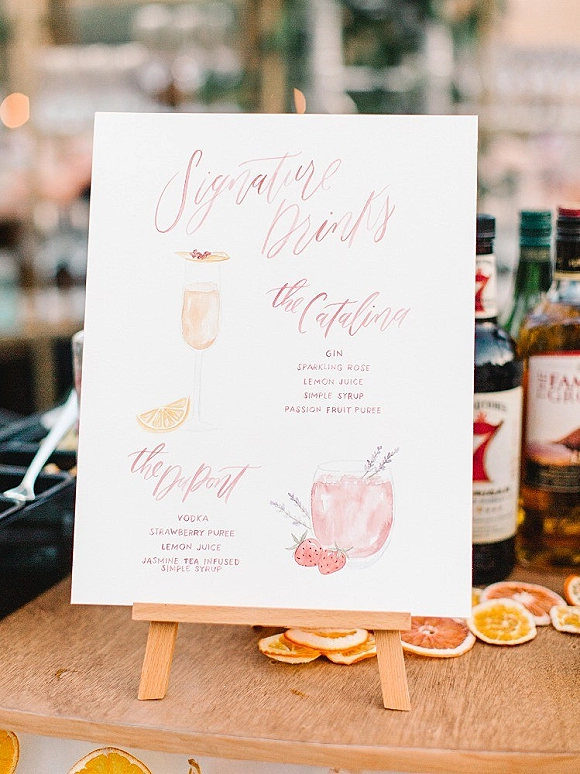 Signature
Drinks
the Catalina
GIN
SPARKLING ROSE
LEMON JUICE
SIMPLE SYRUP
PASSION FRUIT PUREE
the DuPont
VODKA
STRAWBERRY PUREE
LEMON JUICE
JASMINE TEA INFUSED
SIMPLE SYRUP
7
FAM
GRO